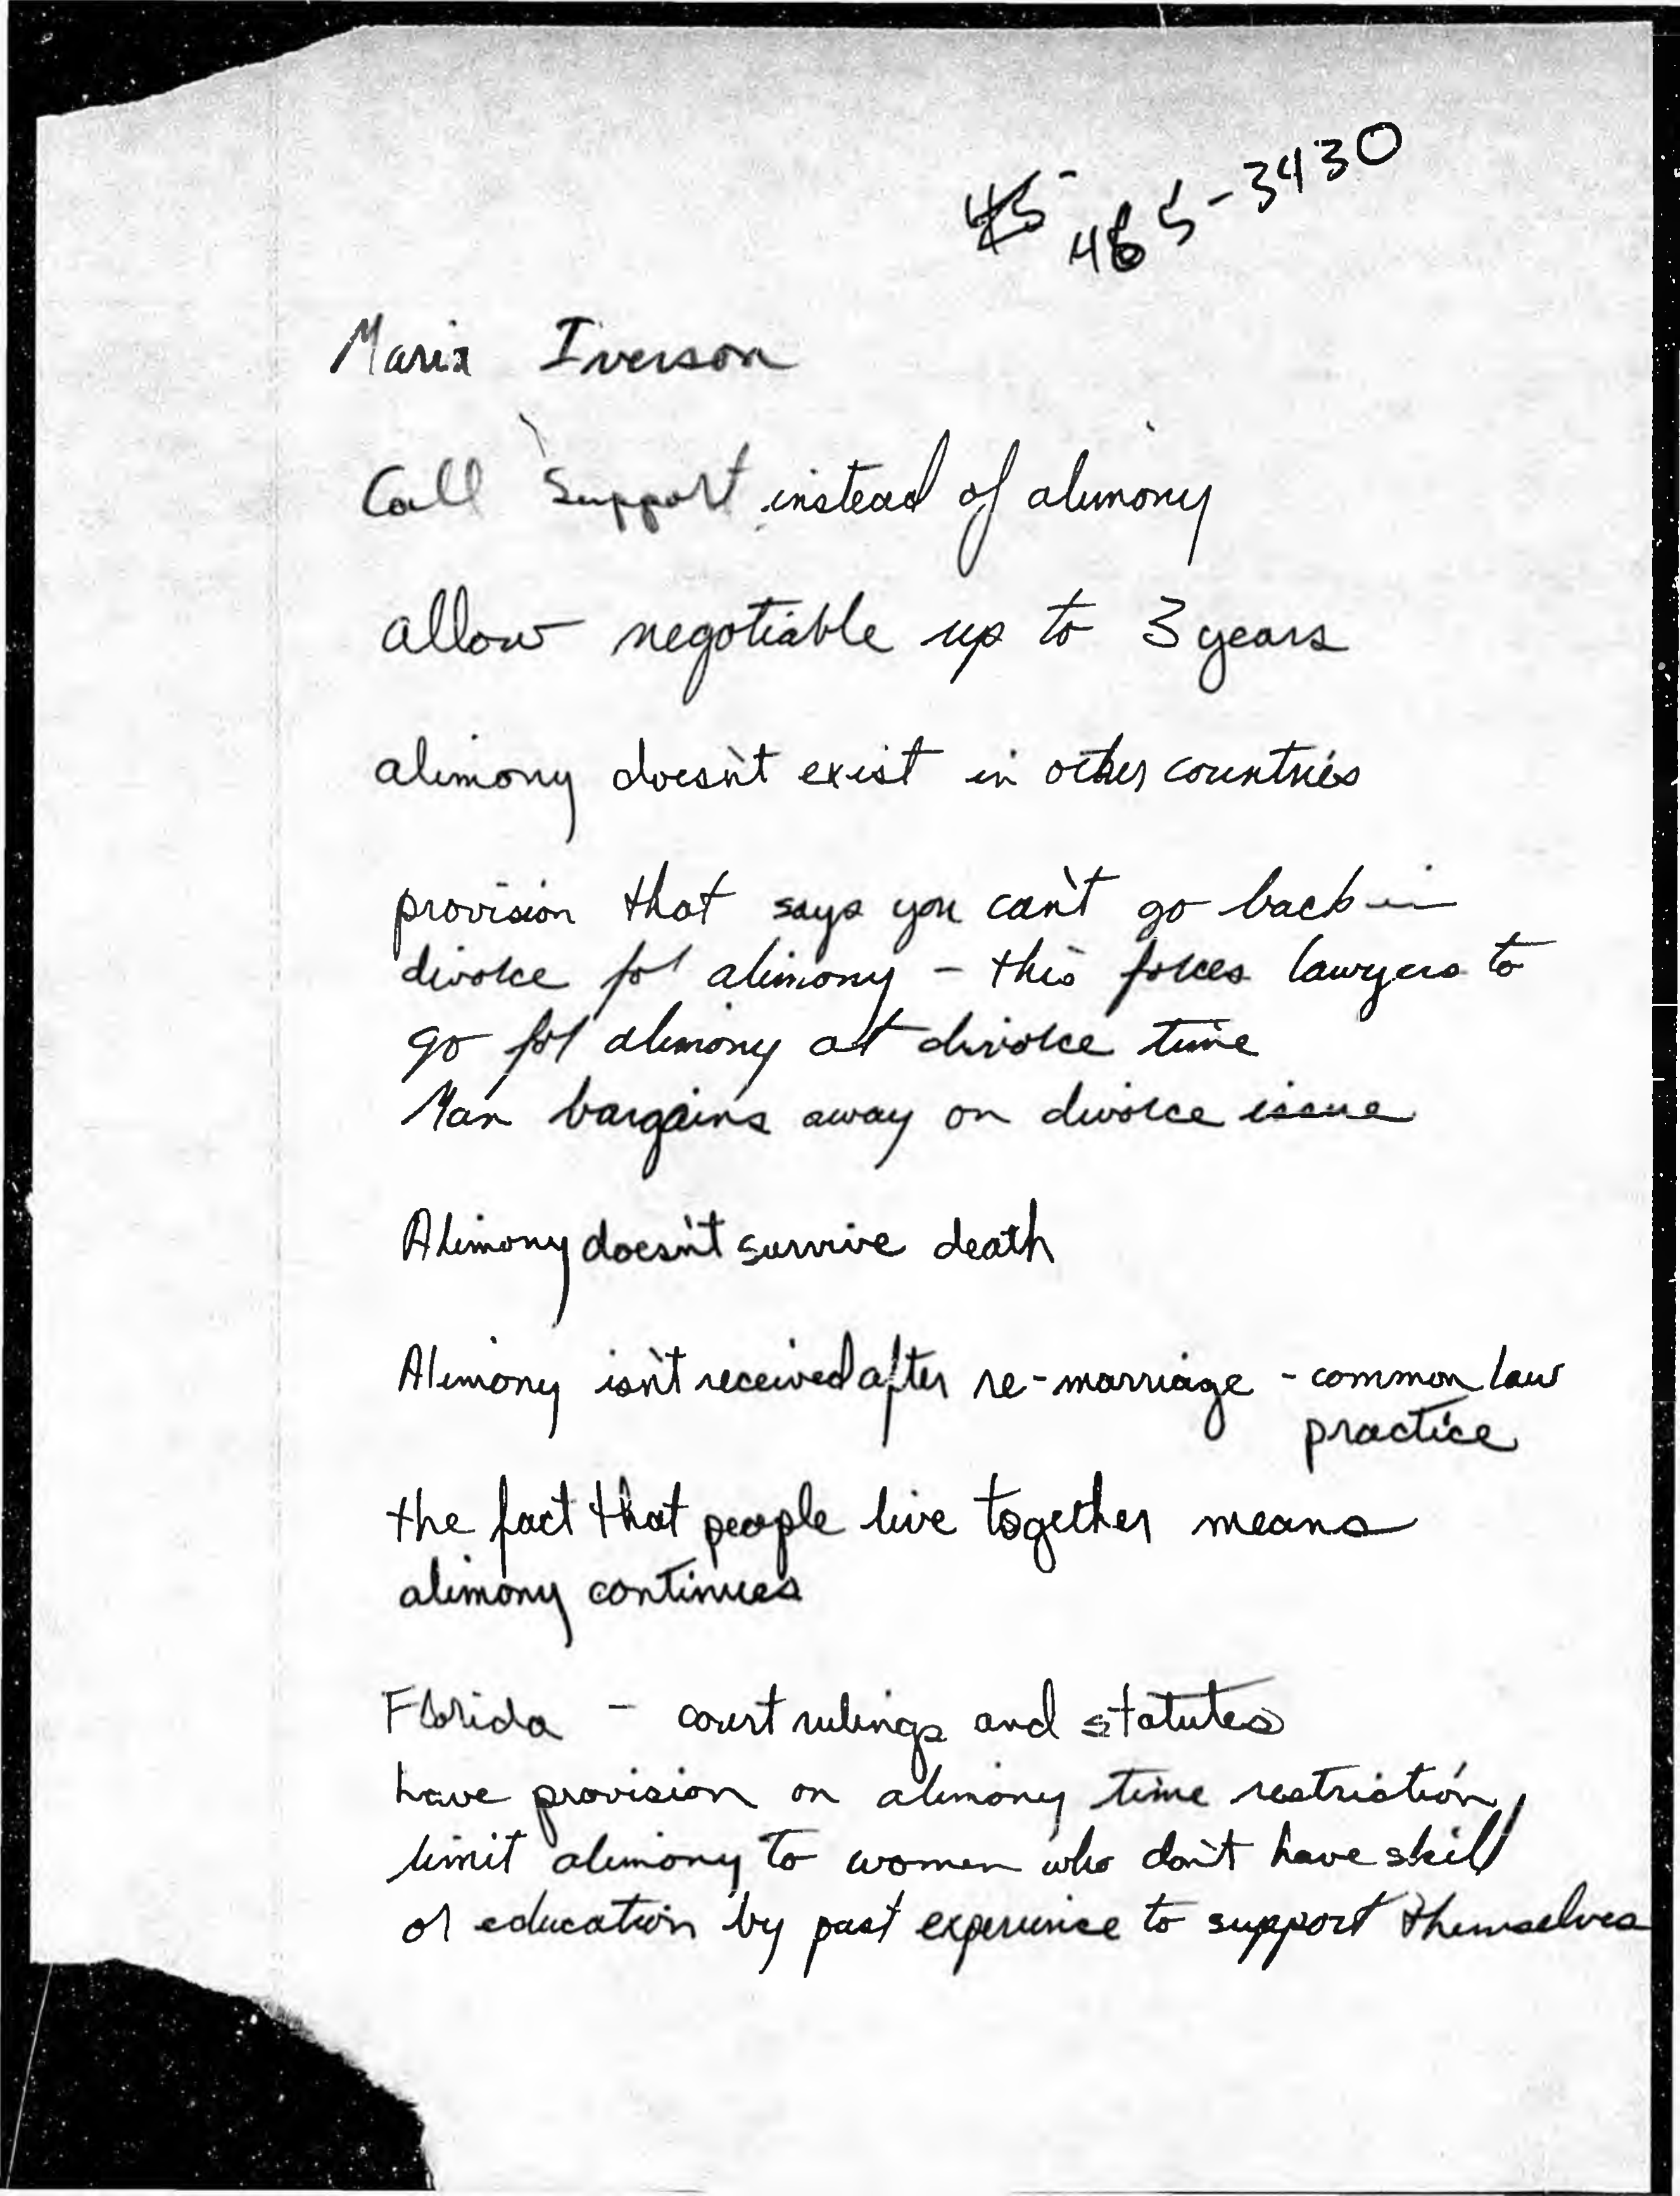 45-
465-3430
Maria Iverson
Call Support instead of alimony
allow negotiable up to 3 years
alimony doesn't exist in other countries
provision that says you can't go back in
divorce for alimony - this forces lawyers to
go for alimony at divorce time
Man bargains away on divorce issue
Alimony doesn't survive death
Alimony isn't received after re-marriage - common law
practice
the fact that people live together means
alimony continues
Florida - court rulings and statutes
have provision on alimony time restriction,
limit alimony to women who don't have skill
or education by past experience to support themselves